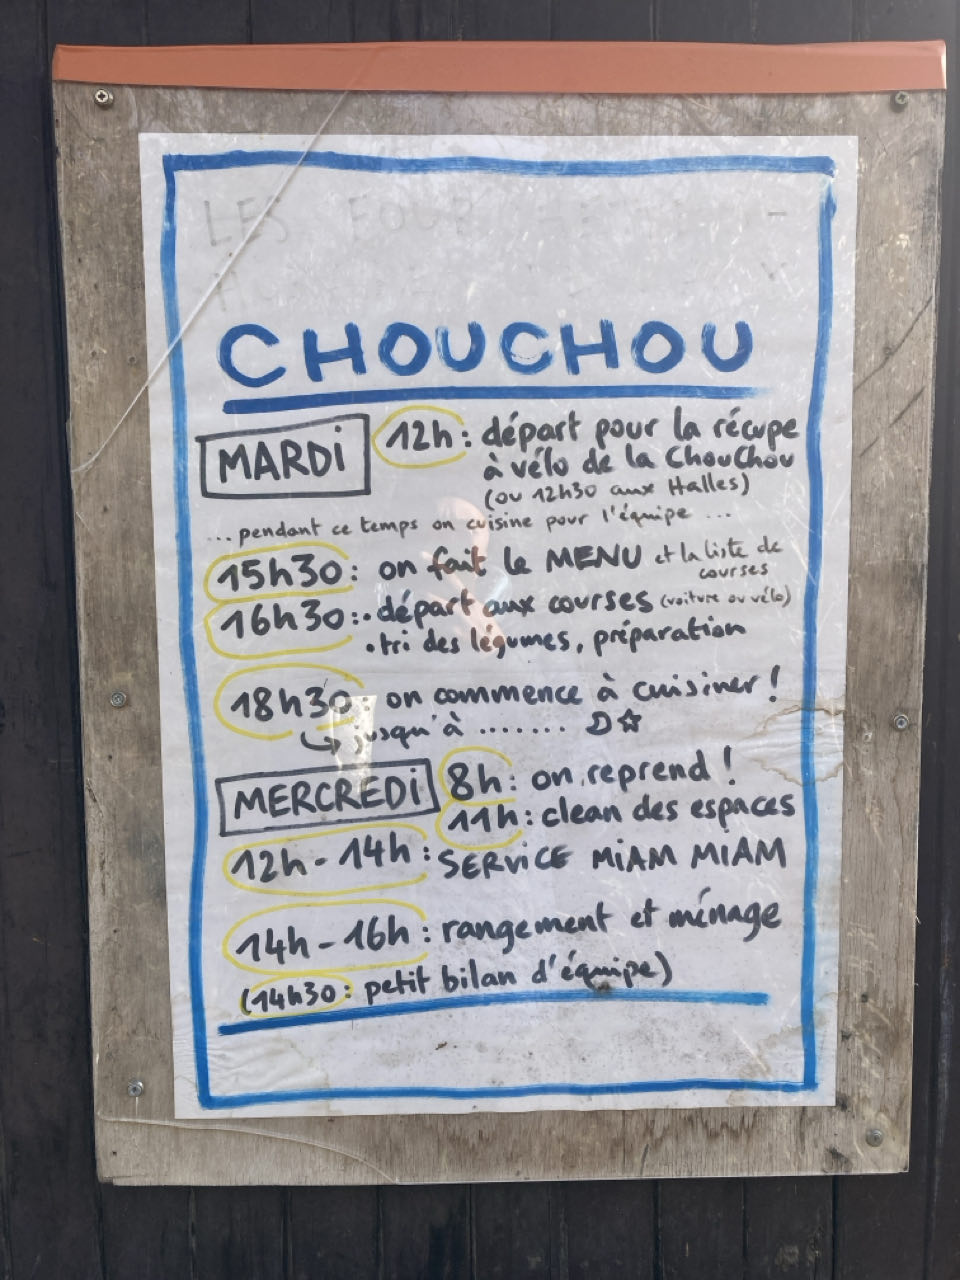 LES
CHOUCHOU
MARDi
12h: départ pour la récupe
à vélo de la ChouChou
(ou 12h30 aux Halles)
...pendant ce temps on cuisine pour l'équipe ...
15h30: on fait le MENU et la liste de
courses
16h30:. départ aux courses (voiture ou vélo)
. tri des légumes, préparation
18h30: on commence à cuisiner!
↳ jusqu'à ....... D☆
MERCREDi
8h: on reprend!
11h: clean des espaces
12h-14h: SERViCE MiAM MiAM
14h-16h: rangement et ménage
(14h30: petit bilan d'équipe)